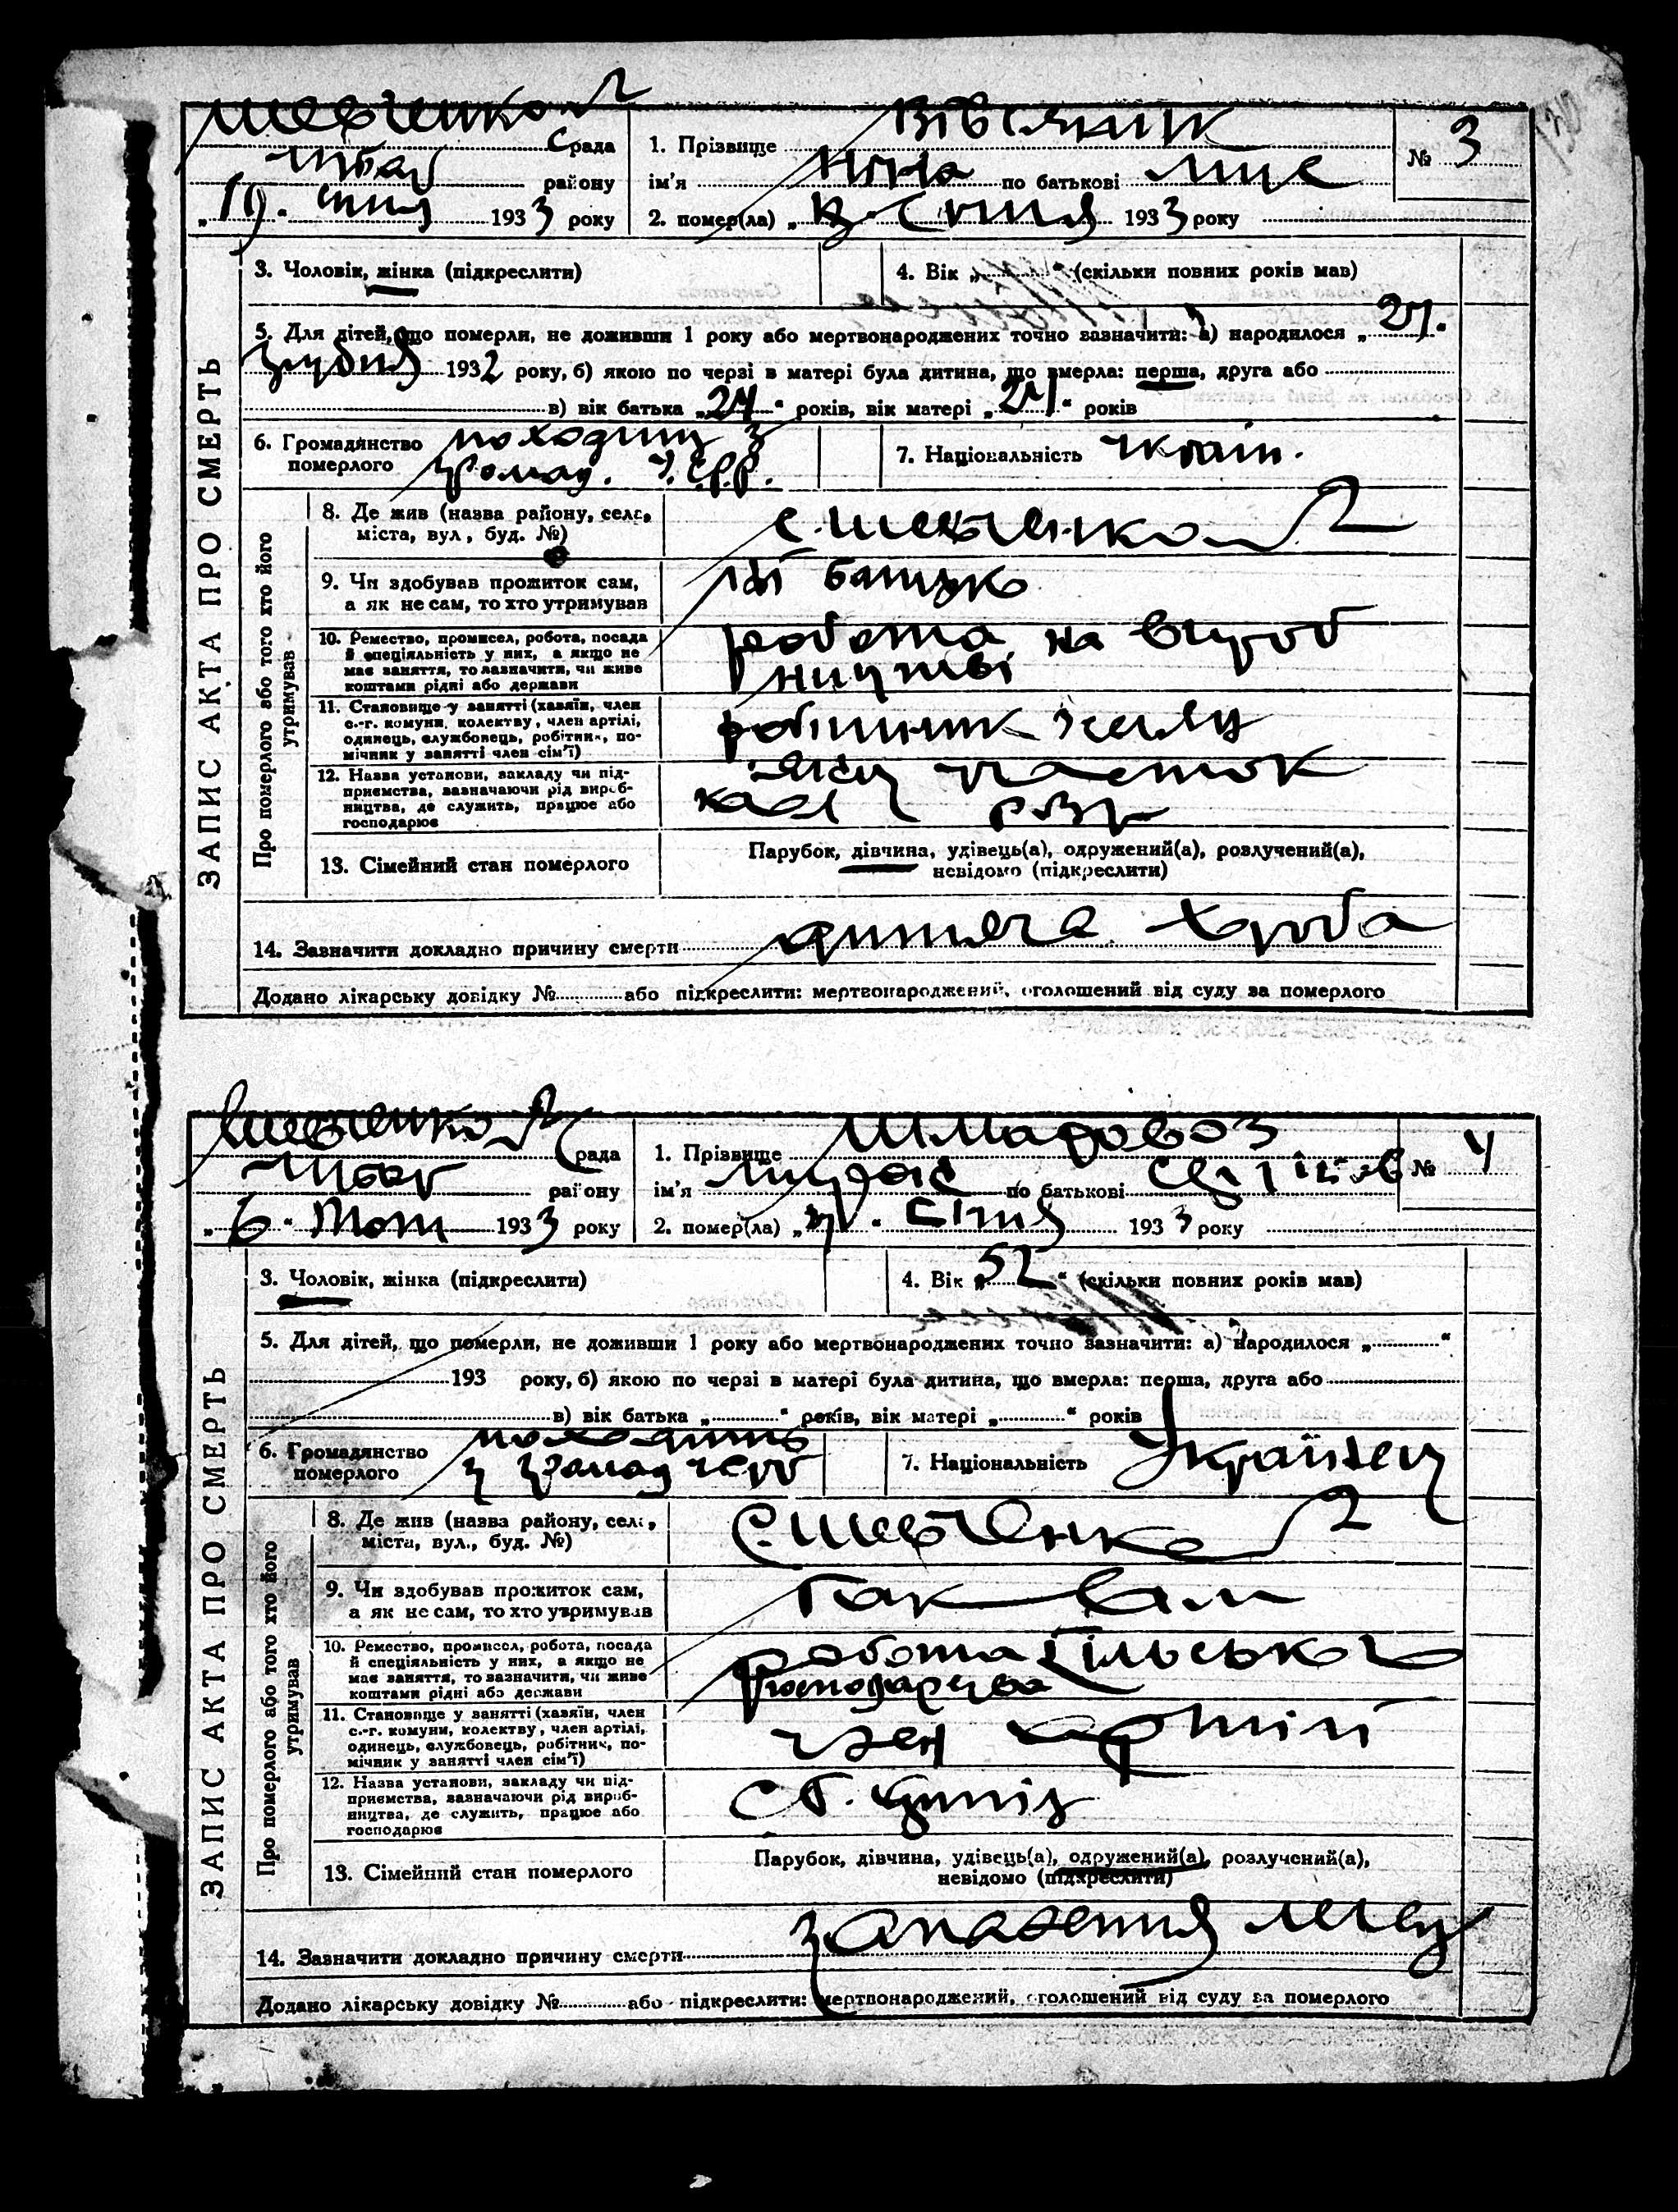 Шевченков
Срада 1. Прізвище Вівсяник № 3
району ім'я Ніна по батькові Мис
„19" січня 1933 року 2. помер(ла) „18" Січня 1933 року
3. Чоловік, жінка (підкреслити) 4. Вік „ " (скільки повних років мав)
5. Для дітей, що померли, не доживши 1 року або мертвонароджених точно зазначити: а) народилося „27"
грудня 1932 року, б) якою по черзі в матері була дитина, що вмерла: перша, друга або
в) вік батька „24" років, вік матері „21" років
6. Громадянство походить з 7. Національність україн.
померлого громад. У.С.р.р.
ЗАПИС АКТА ПРО СМЕРТЬ
Про померлого або того хто його утримував
8. Де жив (назва району, села, с. Шевченков
міста, вул., буд. №)
9. Чи здобував прожиток сам, її батько
а як не сам, то хто утримував
10. Ремество, промисел, робота, посада робота на вироб
й спеціяльність у них, а якщо не ництві
має заняття, то зазначити, чи живе
коштами рідні або держави
11. Становище у занятті (хазяїн, член робітник
с.-г. комуни, колектву, член артілі,
одинець, службовець, робітник, по-
мічник у занятті член сім'ї)
12. Назва установи, закладу чи під-
приємства, зазначаючи рід вироб-
ництва, де служить, працює або
господарює
13. Сімейний стан померлого Парубок, дівчина, удівець(а), одружений(а), розлучений(а),
невідомо (підкреслити)
14. Зазначити докладно причину смерти дитяча хроба
Додано лікарську довідку № або підкреслити: мертвонароджений, оголошений від суду за померлого
Шевченков
рада 1. Прізвище Шмаровоз № 4
району ім'я по батькові
„6" Лют 1933 року 2. помер(ла) „ " Січня 1933 року
3. Чоловік, жінка (підкреслити) 4. Вік „52" (скільки повних років мав)
5. Для дітей, що померли, не доживши 1 року або мертвонароджених точно зазначити: а) народилося „ "
193 року, б) якою по черзі в матері була дитина, що вмерла: перша, друга або
в) вік батька „ " років, вік матері „ " років
6. Громадянство походить 7. Національність Українец
померлого з громад УСРР
ЗАПИС АКТА ПРО СМЕРТЬ
Про померлого або того хто його утримував
8. Де жив (назва району, села, С. Шевченков
міста, вул., буд. №)
9. Чи здобував прожиток сам, Так сам
а як не сам, то хто утримував
10. Ремество, промисел, робота, посада робота сільсько г
й спеціяльність у них, а якщо не господарства
має заняття, то зазначити, чи живе
коштами рідні або держави
11. Становище у занятті (хазяїн, член член артілі
с.-г. комуни, колектву, член артілі,
одинець, службовець, робітник, по-
мічник у занятті член сім'ї)
12. Назва установи, закладу чи під-
приємства, зазначаючи рід вироб-
ництва, де служить, працює або
господарює
13. Сімейний стан померлого Парубок, дівчина, удівець(а), одружений(а), розлучений(а),
невідомо (підкреслити)
14. Зазначити докладно причину смерти запалення леген
Додано лікарську довідку № або підкреслити: мертвонароджений, оголошений від суду за померлого